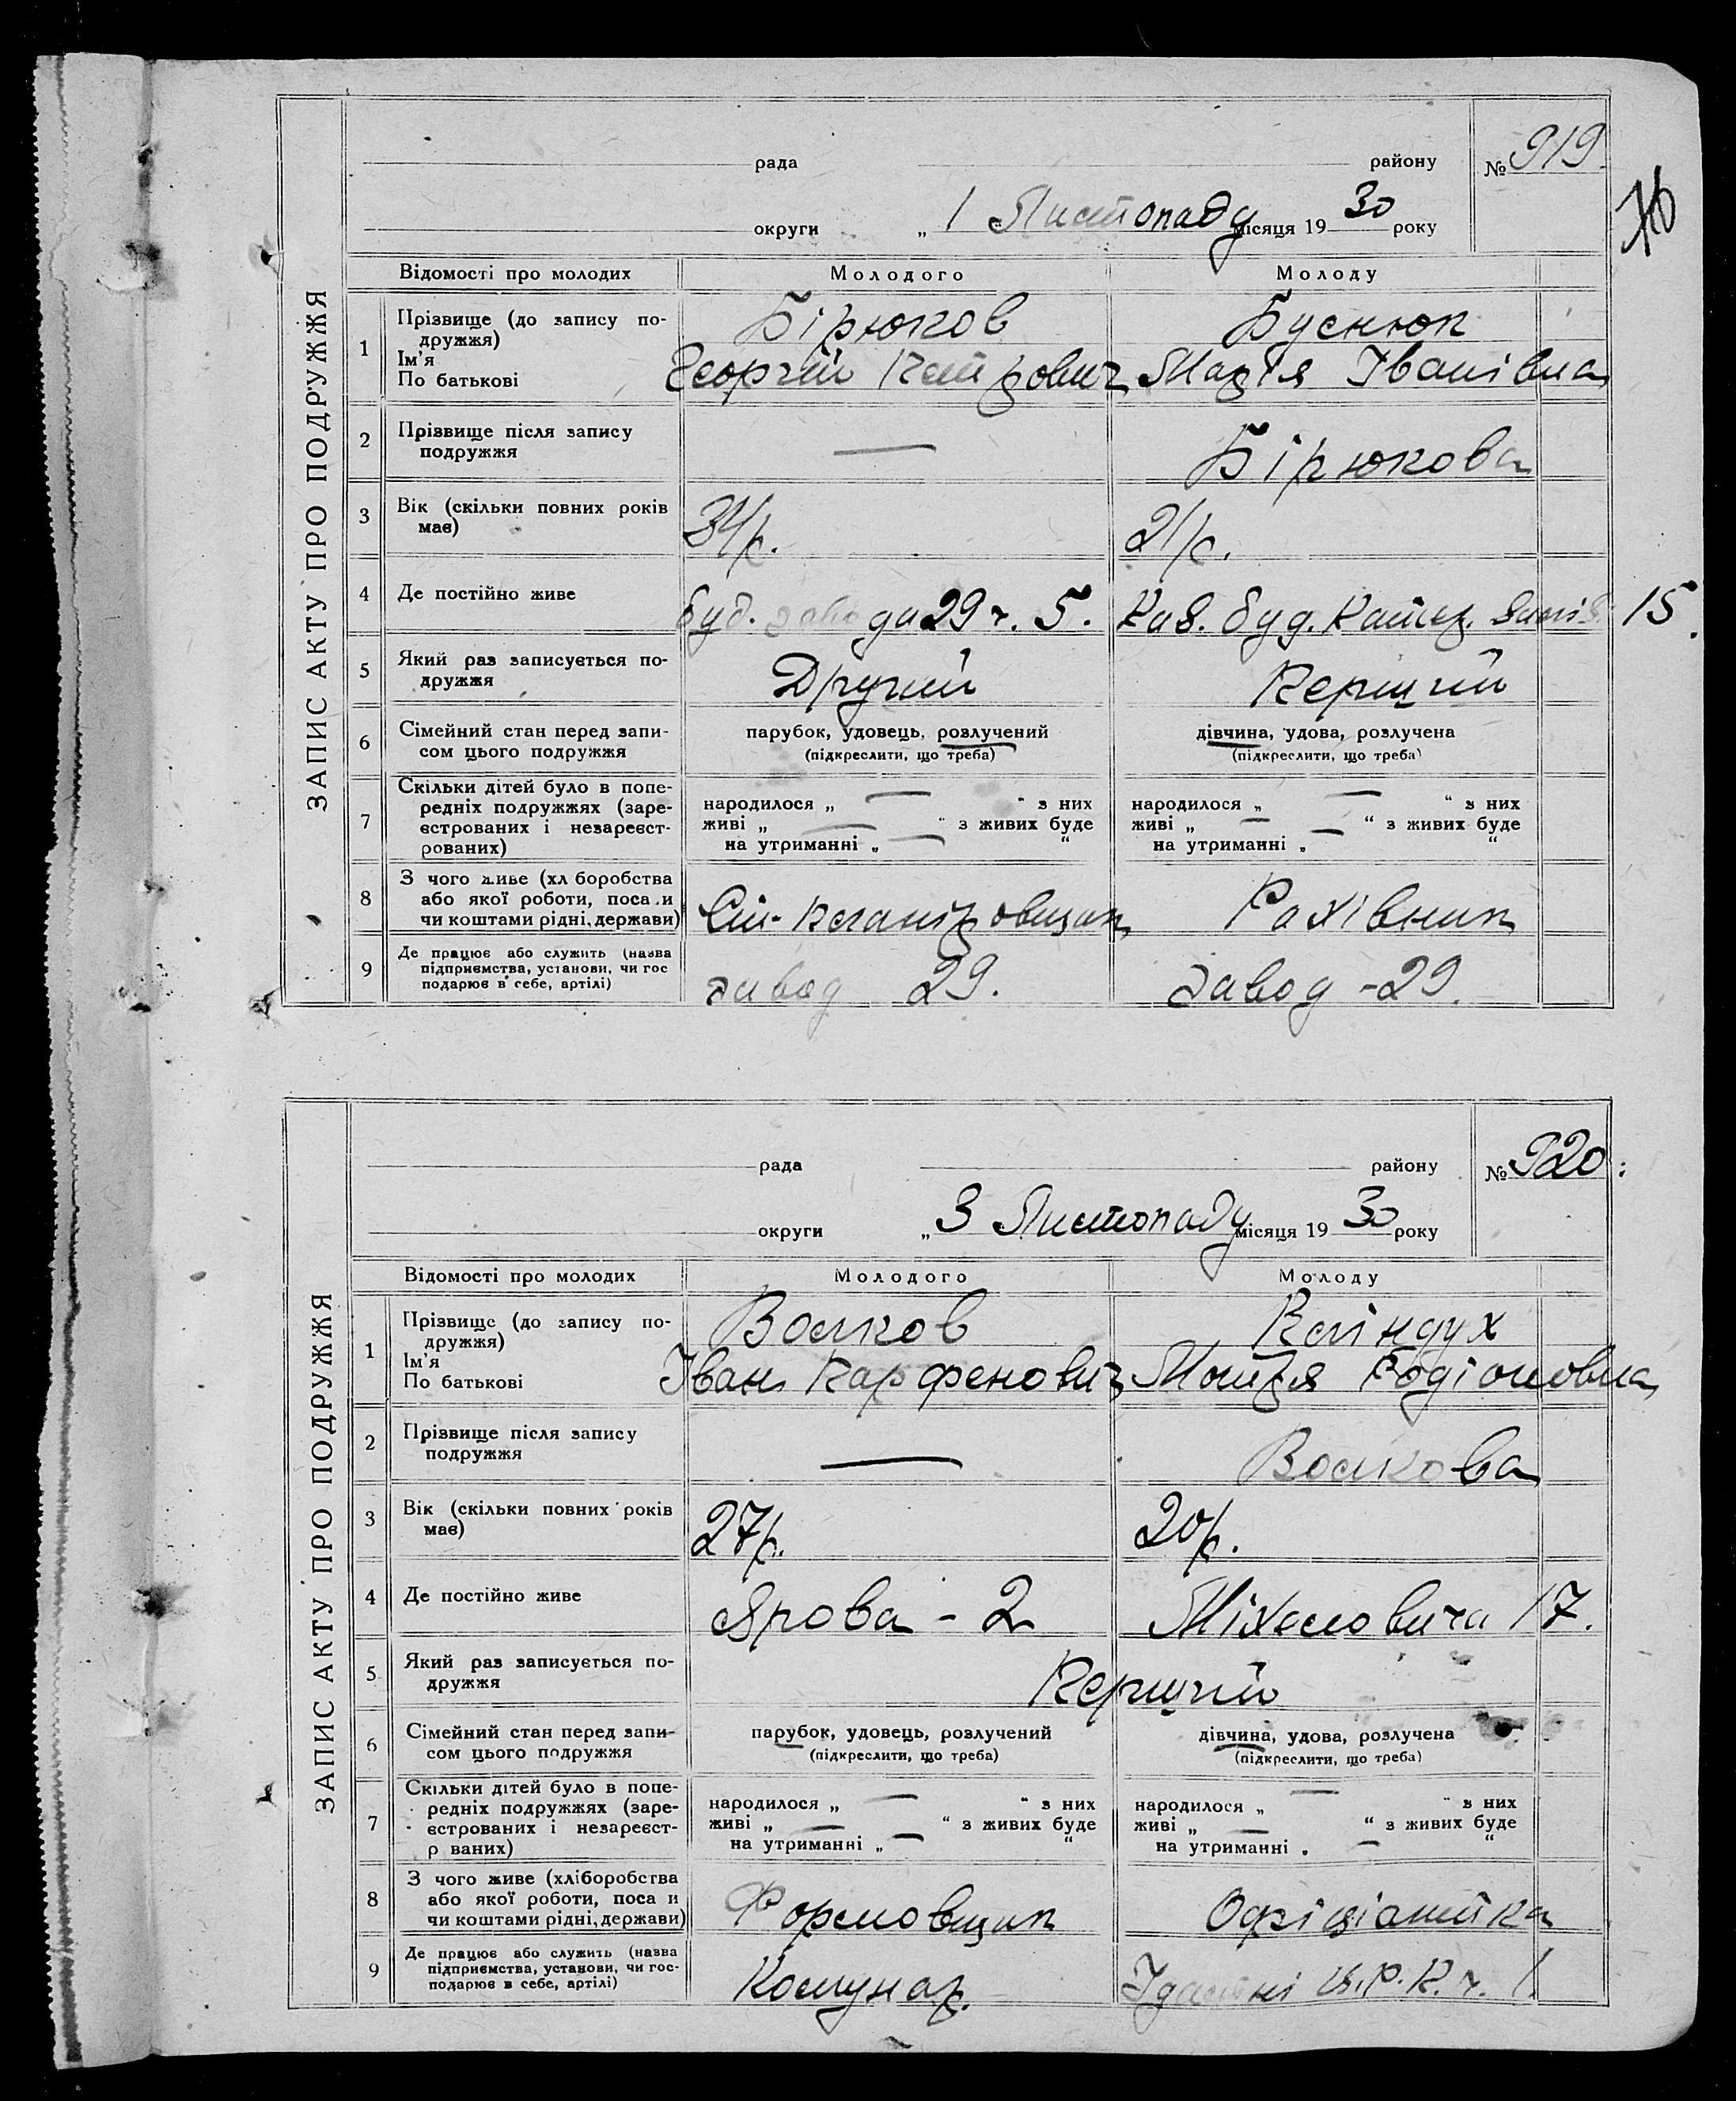 ЗАПИС АКТУ ПРО ПОДРУЖЖЯ
рада району № 919
76
округи „ 1 Листопаду місяця 1930 року
Відомості про молодих Молодого Молоду
1 Прізвище (до запису по- Бірюков Буснюк
дружжя)
Ім'я Георгій Петрович Марія Іванівна
По батькові
2 Прізвище після запису — Бірюкова
подружжя
3 Вік (скільки повних років 34 р. 21 р.
має)
4 Де постійно живе буд. завода 29 г. 5. Кав. буд. 15.
5 Який раз записується по- Другий Перший
дружжя
6 Сімейний стан перед запи- парубок, удовець, розлучений дівчина, удова, розлучена
сом цього подружжя (підкреслити, що треба) (підкреслити, що треба)
7 Скільки дітей було в попе-
редніх подружжях (заре- народилося „ — “ з них народилося „ — “ з них
єстрованих і незареєст- живі „ — “ з живих буде живі „ — “ з живих буде
рованих) на утриманні „ — “ на утриманні „ — “
8 З чого живе (хл боробства
або якої роботи, поса и Рахівник
чи коштами рідні, держави)
9 Де працює або служить (назва завод 29. Завод - 29.
підприємства, установи, чи гос
подарює в себе, артілі)
ЗАПИС АКТУ ПРО ПОДРУЖЖЯ
рада району № 920.
округи „ 3 Листопаду місяця 1930 року
Відомості про молодих Молодого Молоду
1 Прізвище (до запису по- Волков Кліндух
дружжя)
Ім'я Іван Парфенович Мотря Родіоновна
По батькові
2 Прізвище після запису — Волкова
подружжя
3 Вік (скільки повних років 27 р. 20 р.
має)
4 Де постійно живе Ярова - 2 Міхеловича 17.
5 Який раз записується по- Перший
дружжя
6 Сімейний стан перед запи- парубок, удовець, розлучений дівчина, удова, розлучена
сом цього подружжя (підкреслити, що треба) (підкреслити, що треба)
7 Скільки дітей було в попе-
редніх подружжях (заре- народилося „ — “ з них народилося „ — “ з них
єстрованих і незареєст- живі „ — “ з живих буде живі „ — “ з живих буде
р ваних) на утриманні „ — “ на утриманні „ — “
8 З чого живе (хліборобства
або якої роботи, поса и Формовщик Офіціантка
чи коштами рідні, держави)
9 Де працює або служить (назва Комунар. Ц.Р.К. ч. 1.
підприємства, установи, чи гос-
подарює в себе, артілі)